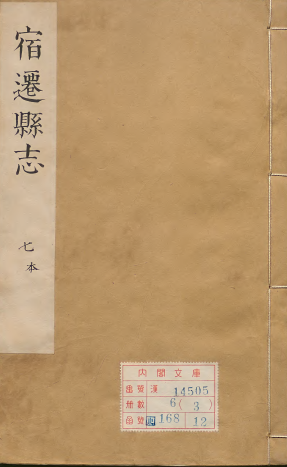 宿遷縣志
七本
內閣文庫
番號 漢 14505
冊數 6 (3)
函號 168 12